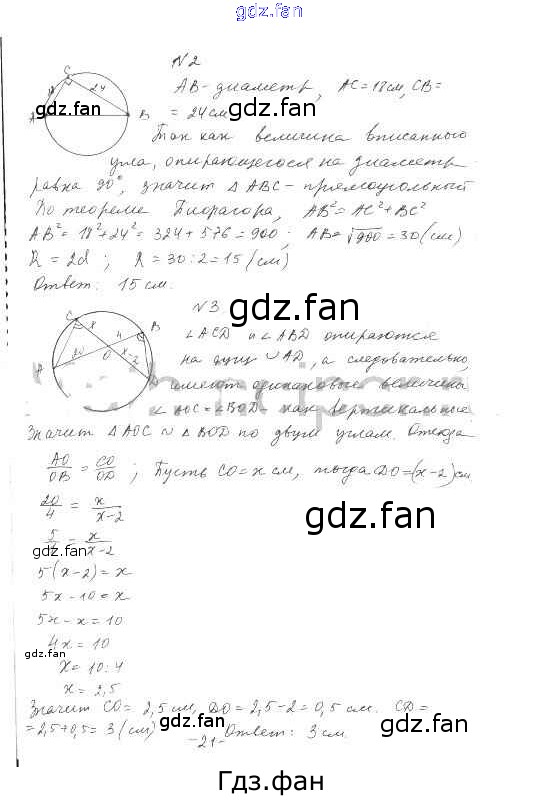 gdz.fan
N2
C
24
A
B
AB - диаметр, AC = 18 см, CB =
= 24 см
gdz.fan
gdz.fan
Так как величина вписанного
угла, опирающегося на диаметр
равна 90°, значит △ABC - прямоугольный
По теореме Пифагора, AB² = AC² + BC²
AB² = 18² + 24² = 324 + 576 = 900; AB = √900 = 30 (см)
R = 2d; R = 30 : 2 = 15 (см)
Ответ: 15 см.
gdz.fan
N3
C
x
4
B
20
O
x-2
A
∠ACD и ∠ABD опираются
на дугу ◡AD, а следовательно,
имеют одинаковые величины
∠AOC = ∠BOD - как вертикальные
Значит △AOC ∾ △BOD по двум углам. Отсюда
AO/OB = CO/OD; Пусть CO = x см, тогда DO = (x-2) см
20/4 = x/x-2
gdz.fan
5/ = x/x-2
gdz.fan
5(x-2) = x
5x - 10 = x
5x - x = 10
4x = 10
gdz.fan
x = 10 : 4
x = 2,5
Значит CO = 2,5 см, DO = 2,5 - 2 = 0,5 см. CD =
= 2,5 + 0,5 = 3 (см)
gdz.fan
Ответ: 3 см.
-21-
Гдз.фан